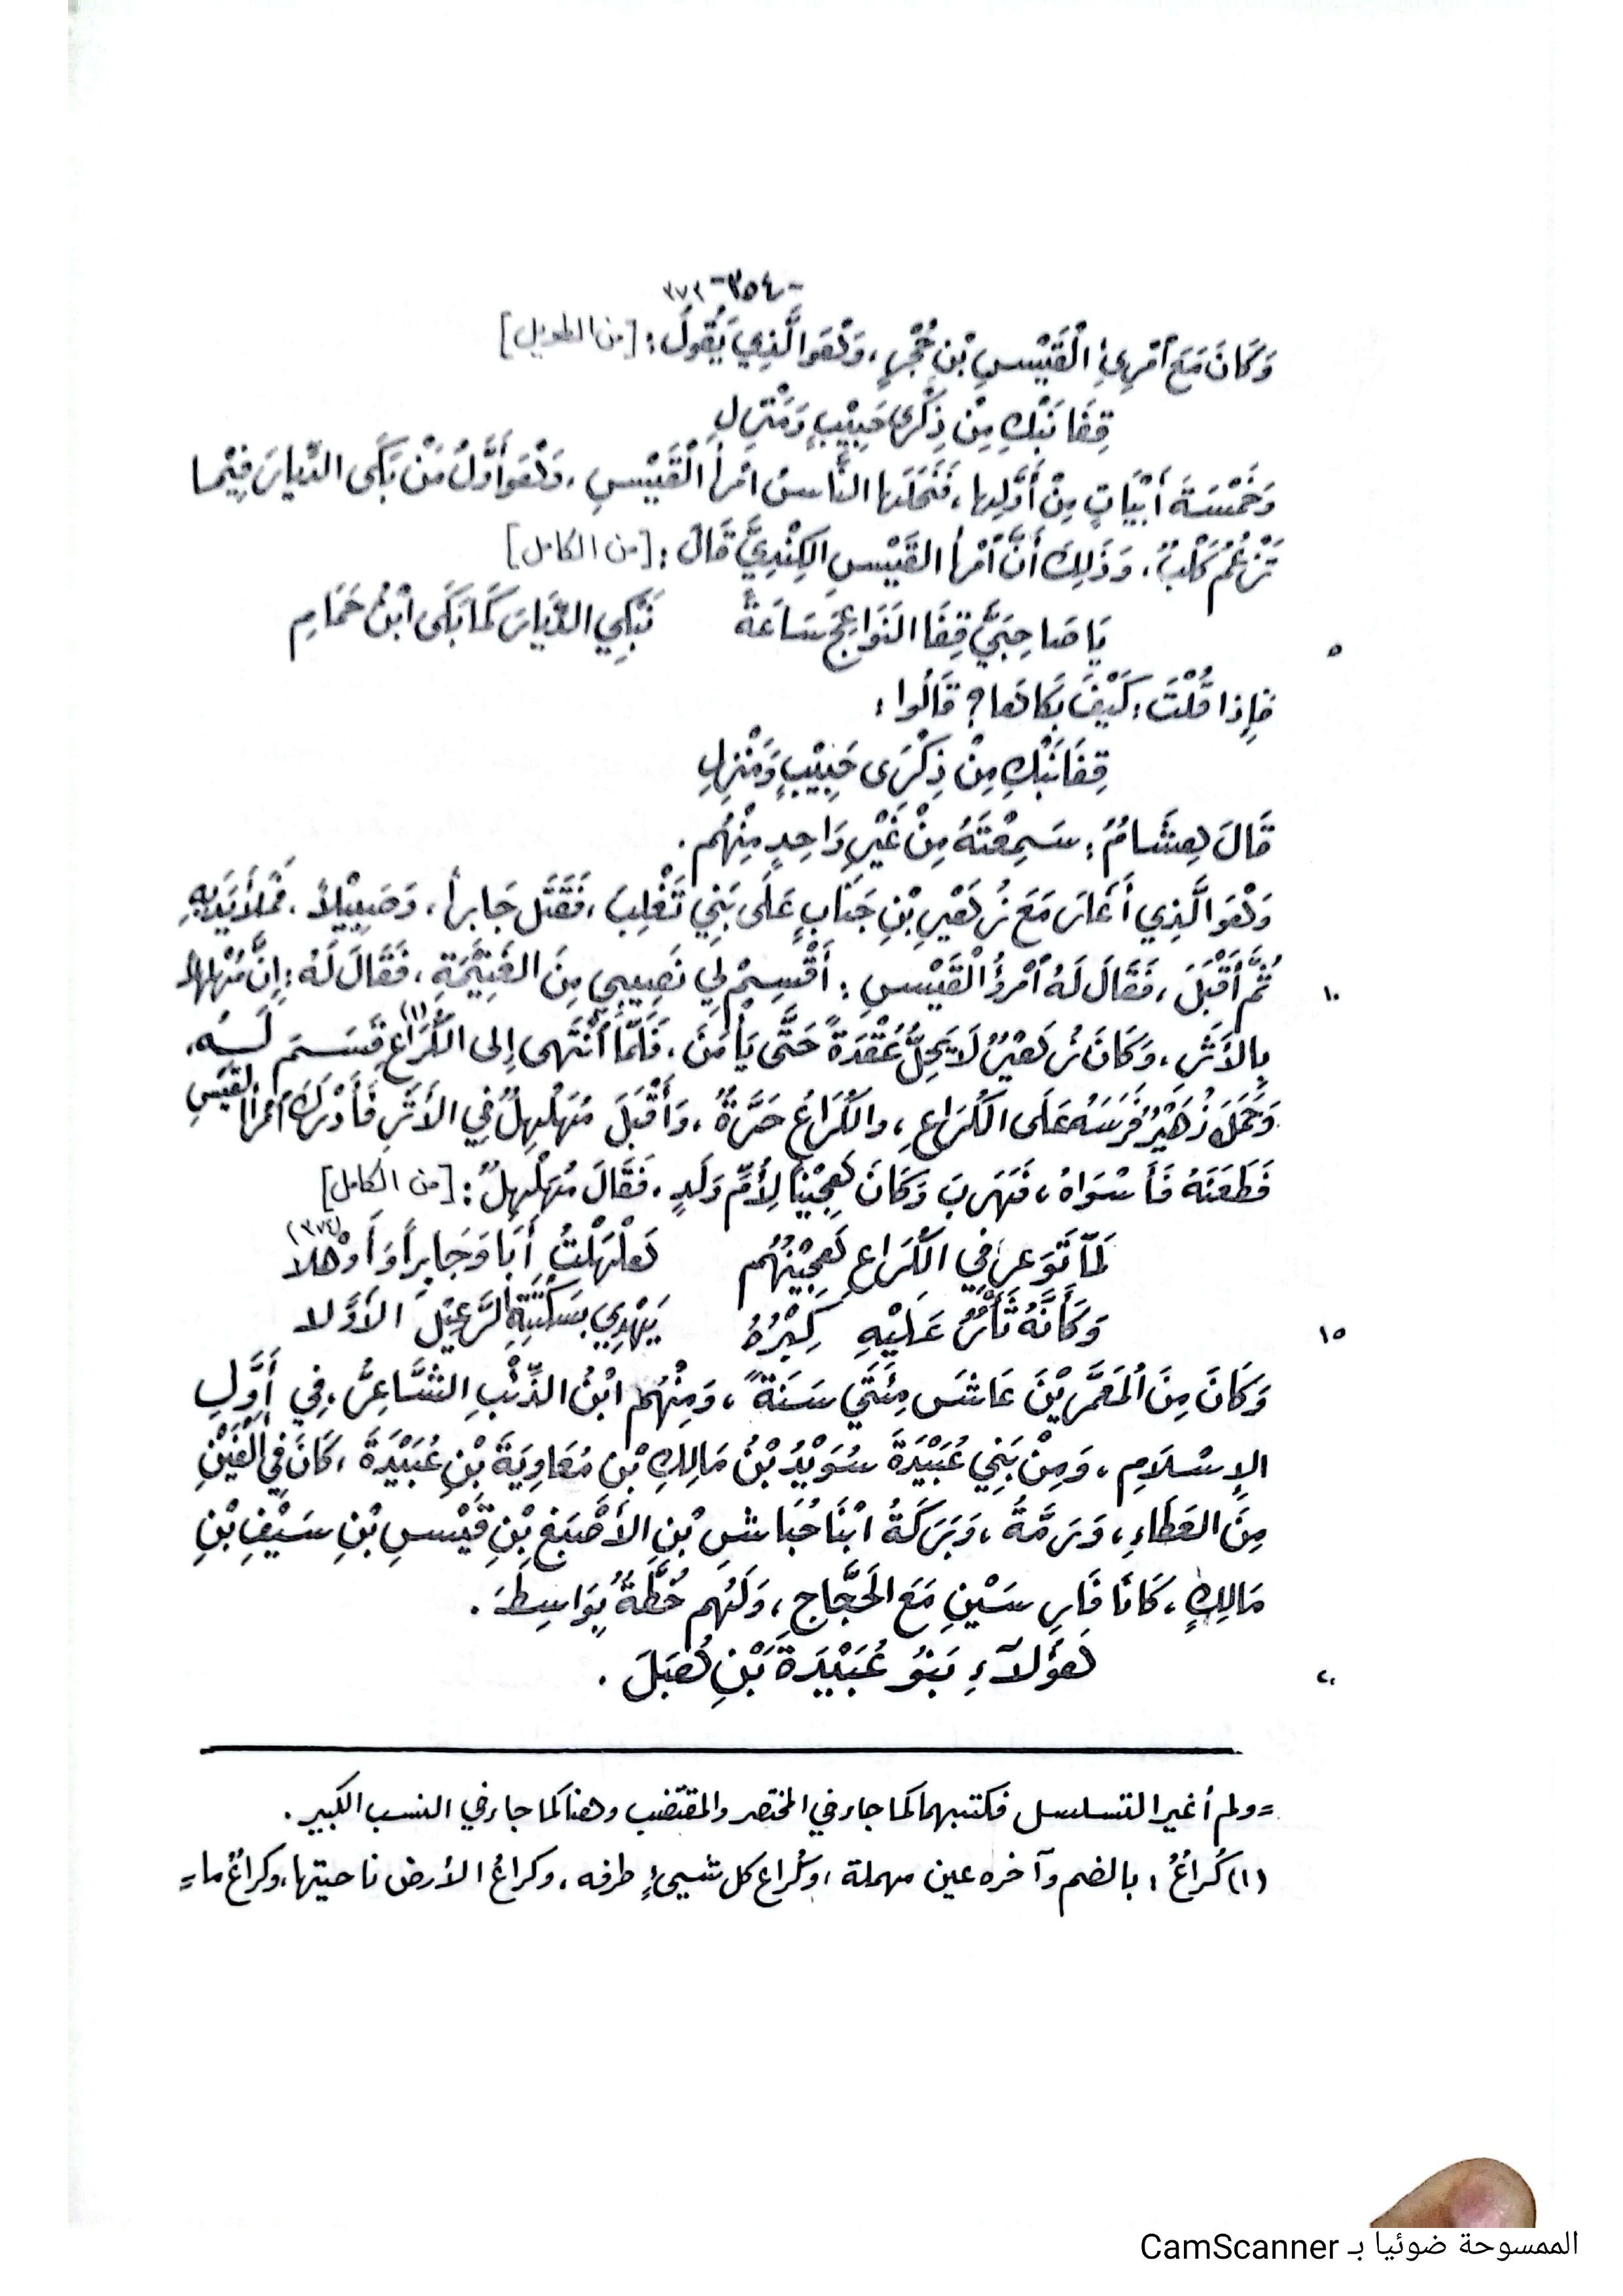 -٣٥٤- ٣٧٣
وَكَانَ مَعَ امْرِئِ الْقَيْسِ بْنِ حُجْرٍ، وَهُوَ الَّذِي يَقُولُ: [من الطويل]
قِفَا نَبْكِ مِنْ ذِكْرَى حَبِيْبٍ وَمَنْزِلِ
وَخَمْسَةَ أَبْيَاتٍ مِنْ أَوَّلِها، فَنَحَلَها النَّاسُ امْرأَ الْقَيْسِ، وَهُوَ أَوَّلُ مَنْ بَكَى الدِّيَارَ فِيْما
تَزْعُمُ كَلْبٌ، وَذَلِكَ أَنَّ امْرأَ القَيْسِ الكِنْدِيَّ قَالَ: [من الكامل]
يَا صَاحِبَيَّ قِفَا النَوَاعِجَ سَاعَةً نَبْكِي الدِّيَارَ كَمَا بَكَى ابْنُ حَمَامِ
٥
فَإِذا قُلْتَ: كَيْفَ بَكَاهَا؟ قَالُوا:
قِفَا نَبْكِ مِنْ ذِكْرَى حَبِيْبٍ وَمَنْزِلِ
قَالَ هِشَامٌ: سَمِعْتَهُ مِنْ غَيْرِ وَاحِدٍ مِنْهُم.
وَهُوَ الَّذِي أَغَارَ مَعَ زُهَيْرِ بْنِ جَنَابٍ عَلَى بَنِي تَغْلِبَ، فَقَتَلَ جَابراً، وَصَبِيْلاً، فَمَلأَ يَدَيْهِ
ثُمَّ أَقْبَلَ، فَقَالَ لَهُ امْرُؤُ الْقَيْسِ: أَقْسِمْ لِي نَصِيبِي مِنَ الغَنِيْمَةِ، فَقَالَ لَهُ: إِنَّ مُهَلْهِلاً
١٠
بِالأَثَرِ، وَكَانَ زُهَيْرٌ لَا يَحِلُّ عُقْدَةً حَتَّى يَأْمَنَ، فَلَمَّا انْتَهى إِلى الكُرَاعِ(١) قَسَمَ لَهُ،
وَحَمَلَ زُهَيْرٌ فَرَسَهُ عَلَى الكُرَاعِ، والكُرَاعُ حَرَّةٌ، وَأَقْبَلَ مُهَلْهِلٌ في الأَثَرِ فَأَدْرَكَ امْرأَ القَيْسِ
فَطَعَنَهُ فَأَشْوَاهُ، فَهَرَبَ وَكَانَ هَجِيْناً لِأُمِّ وَلَدٍ، فَقَالَ مُهَلْهِلٌ: [من الكامل]
لَمّا تَوَعرَ فِي الكُرَاعِ هَجِيْنُهُم هَلْهَلْتُ أَبَا وَجَابِراً وَأَوْهَلا (٣٧٤)
وَكَأَنَّهُ ثَأْرٌ عَلَيْهِ كِبْرُهُ يَهْدِي بِسَكَّتِهِ الرَّعِيْلَ الأَوَّلا
١٥
وَكَانَ مِنَ المُعَمَّرِيْنَ عَاشَ مِئَتَي سَنَةً، وَمِنْهُم ابْنُ الذِّئْبِ الشَّاعِرُ، فِي أَوَّلِ
الإِسْلَامِ، وَمِنْ بَنِي عُبَيْدَةَ سُوَيْدُ بْنُ مَالِكِ بْنِ مُعَاوِيَةَ بْنِ عُبَيْدَةَ، كَانَ فِي أَلْفَيْنِ
مِنَ العَطَاءِ، وَرِمَّةُ، وَبَرَكَةُ ابْنَا حُبَاشِ بْنِ الأَصْبَغِ بْنِ قَيْسِ بْنِ سَيْفِ بْنِ
مَالِكٍ، كَانَا فَارِسَيْنِ مَعَ الحَجَّاجِ، وَلَهُم خُطَّةٌ بِوَاسِطَ.
هَؤُلَآءِ بَنُو عُبَيْدَةَ بْنِ هُبَلَ.
٢٠
= ولم أغير التسلسل فكتبهما كما جاء في المختصر والمقتضب وهنا كما جاء في النسب الكبير.
(١) كُرَاعُ: بالضم وآخره عين مهملة، وكُراع كل شيىءٍ طرفه، وكراعُ الأرض ناحيتها، وكراعُ ما =
الممسوحة ضوئيا بـ CamScanner